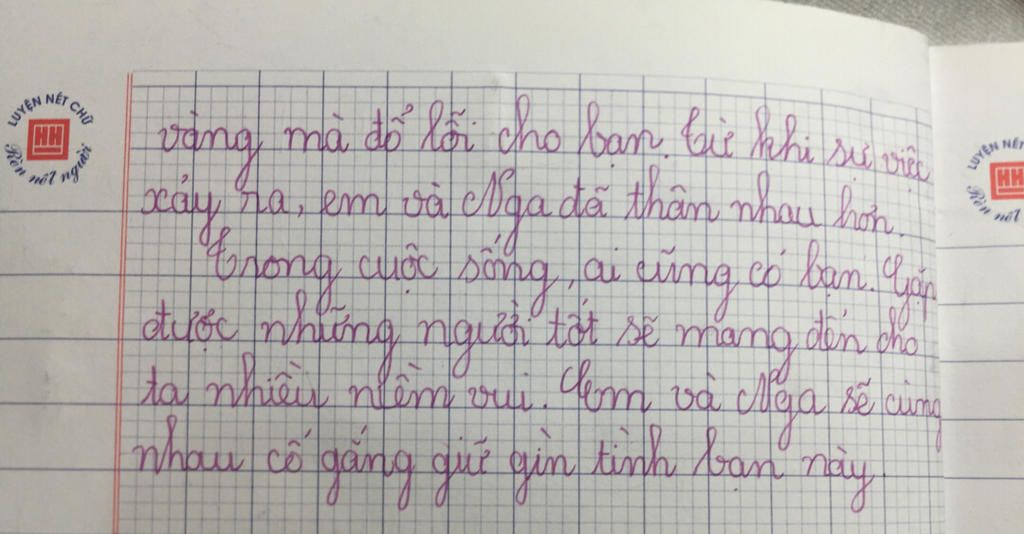 LUYỆN NÉT CHỮ
HH
Rèn nết người
vàng mà đổ lỗi cho bạn. Từ khi sự việc
xảy ra, em và Nga đã thân nhau hơn.
Trong cuộc sống, ai cũng có bạn. Gặp
được những người tốt sẽ mang đến cho
ta nhiều niềm vui. Em và Nga sẽ cùng
nhau cố gắng giữ gìn tình bạn này.
LUYỆN NÉT
HH
Rèn nết